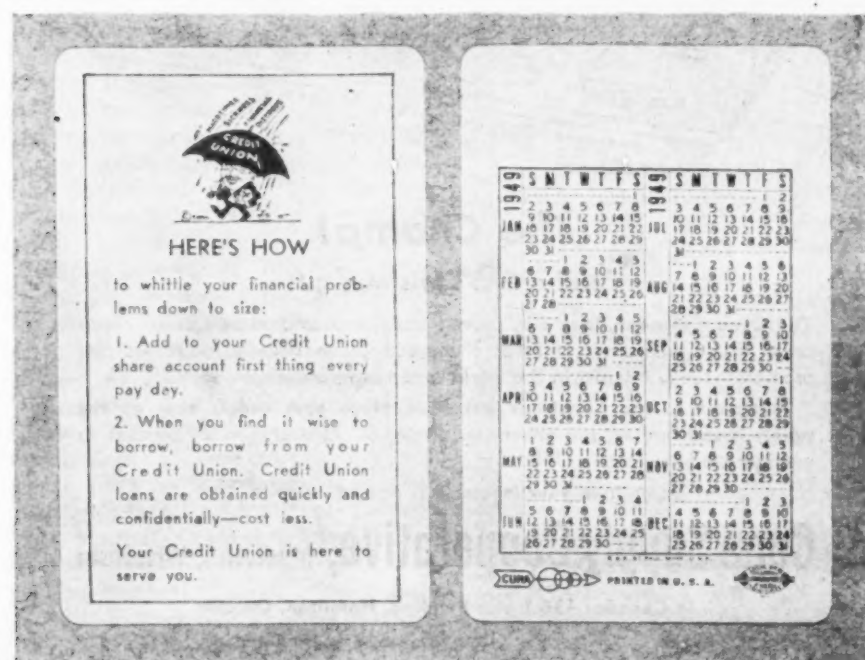 CREDIT
UNION
HERE'S HOW
to whittle your financial prob-
lems down to size:
1. Add to your Credit Union
share account first thing every
pay day.
2. When you find it wise to
borrow, borrow from your
Credit Union. Credit Union
loans are obtained quickly and
confidentially—cost less.
Your Credit Union is here to
serve you.
1949 S M T W T F S
1
2 3 4 5 6 7 8
9 10 11 12 13 14 15
JAN 16 17 18 19 20 21 22
23 24 25 26 27 28 29
30 31
1 2 3 4 5
6 7 8 9 10 11 12
FEB 13 14 15 16 17 18 19
20 21 22 23 24 25 26
27 28
1 2 3 4 5
6 7 8 9 10 11 12
MAR 13 14 15 16 17 18 19
20 21 22 23 24 25 26
27 28 29 30 31
1 2
3 4 5 6 7 8 9
APR 10 11 12 13 14 15 16
17 18 19 20 21 22 23
24 25 26 27 28 29 30
1 2 3 4 5 6 7
8 9 10 11 12 13 14
MAY 15 16 17 18 19 20 21
22 23 24 25 26 27 28
29 30 31
1 2 3 4
5 6 7 8 9 10 11
JUN 12 13 14 15 16 17 18
19 20 21 22 23 24 25
26 27 28 29 30
1949 S M T W T F S
1 2
3 4 5 6 7 8 9
10 11 12 13 14 15 16
JUL 17 18 19 20 21 22 23
24 25 26 27 28 29 30
31
1 2 3 4 5 6
7 8 9 10 11 12 13
AUG 14 15 16 17 18 19 20
21 22 23 24 25 26 27
28 29 30 31
1 2 3
4 5 6 7 8 9 10
SEP 11 12 13 14 15 16 17
18 19 20 21 22 23 24
25 26 27 28 29 30
1
2 3 4 5 6 7 8
9 10 11 12 13 14 15
OCT 16 17 18 19 20 21 22
23 24 25 26 27 28 29
30 31
1 2 3 4 5
6 7 8 9 10 11 12
NOV 13 14 15 16 17 18 19
20 21 22 23 24 25 26
27 28 29 30
1 2 3
4 5 6 7 8 9 10
DEC 11 12 13 14 15 16 17
18 19 20 21 22 23 24
25 26 27 28 29 30 31
CUNA PRINTED IN U. S. A.